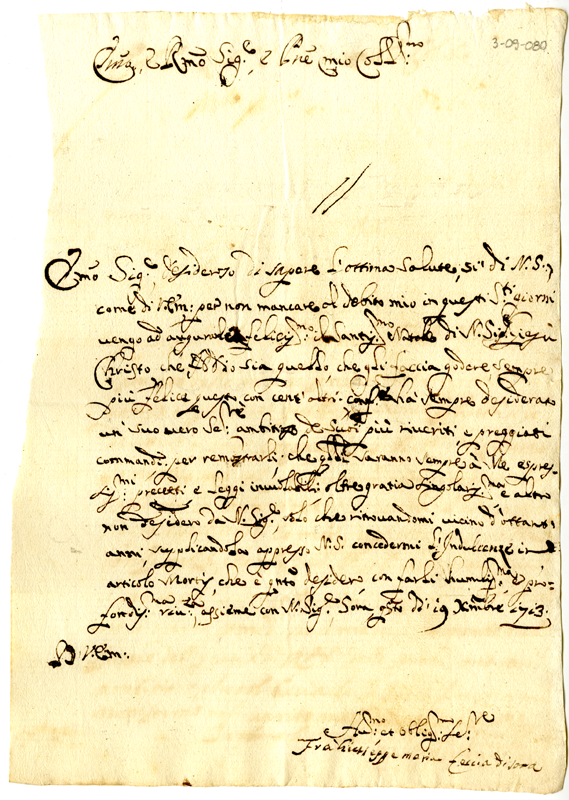 3-09-080
Em̃o, e Rm̃o Sig.re, e Pñe mio Coll.mo
Em̃o Sig.re desideroso di sapere l'ottima salute, sì di N. S.,
come di V. Em: per non mancare al debito mio in questi S.ti giorni
vengo ad augurole felicis.mo il Santis.mo Natale di N. Sig.re Giesù
Christo che Iddio sia quello, che gli faccia godere sempre
più felice questo con cent'altri ha sempre desiderato
un suo vero Se.re ambitioso de Suoi più riveriti, e preggiati
commandi per remostrarli che saranno sempre à Me espres-
sis.mi precetti e leggi inviolabili oltre gratia singolaris.ma e altro
non desidero da N. Sig.re solo che ritrovandomi vicino d'ottant'
anni supplicandola appresso N. S. concedermi l'Indulgenze in
articolo Mortis, che è q.nto desidero con farli humilis.ma e pro-
fondis.ma riv.za assieme con N. Sig.re Sora q.sto dì 19 Xm̃bre 1713.
D V. Em:
Hu.mo et oblig.mo Se.re
Fra Giuseppe Maria di Sora